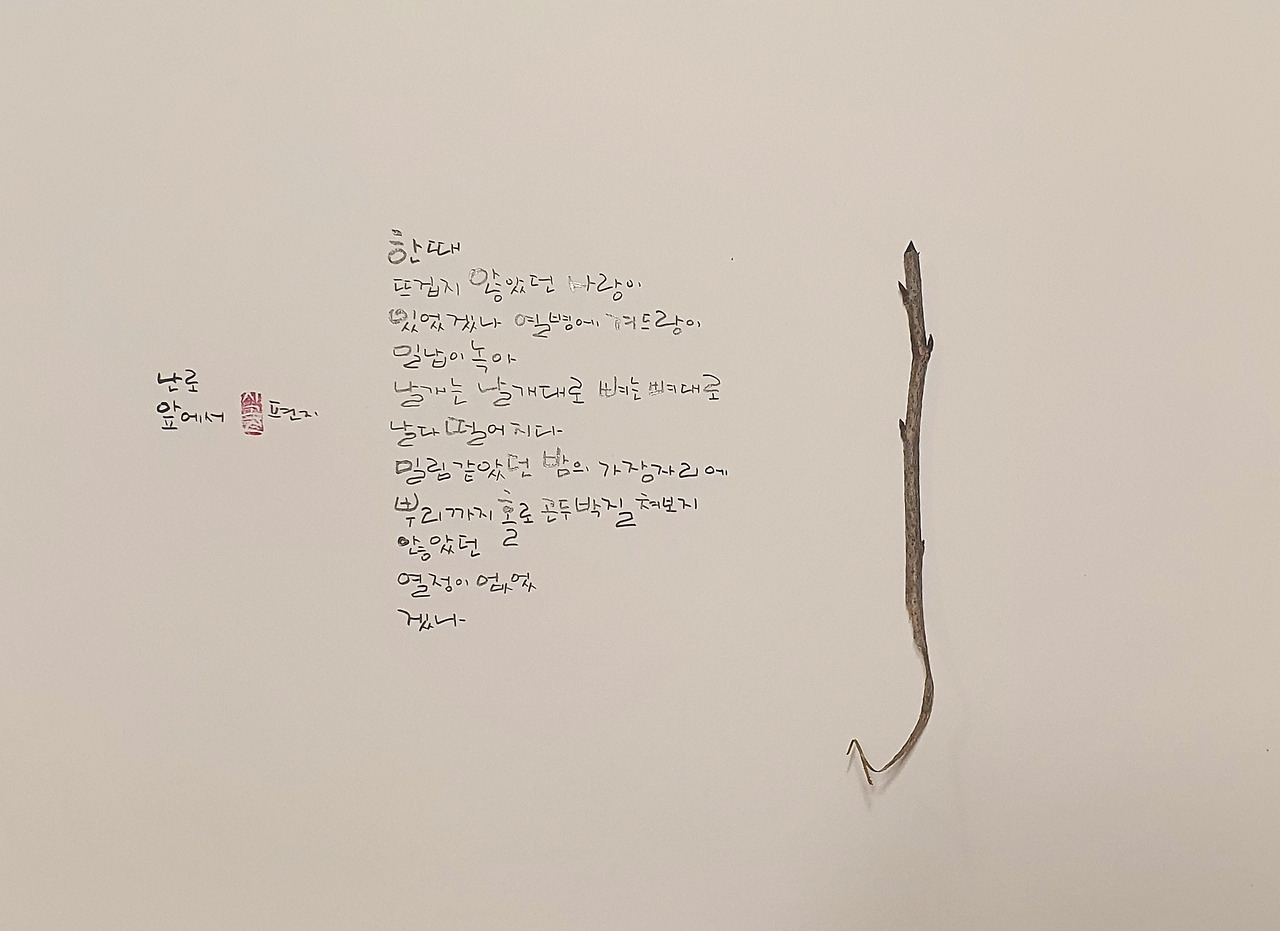 한때
뜨겁지 않았던 사랑이
있었겠나 열병에 겨드랑이
밀납이 녹아
날개는 날개대로 뼈는 뼈대로
날다 떨어지다
밀림같았던 밤의 가장자리에
뿌리까지 홀로 곤두박질 쳐보지
않았던
열정이 없었
겠나
난로
앞에서 편지